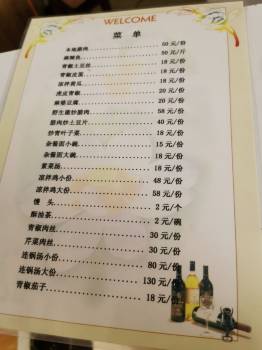 WELCOME
菜 单
本地腊肉 50 元/份
麻辣鱼 50 元/斤
青椒土豆丝 18 元/份
青椒皮蛋 18 元/份
凉拌黄瓜 18 元/份
虎皮青椒 20 元/份
麻婆豆腐 20 元/份
野生菌炒腊肉 58 元/份
腊肉炒土豆片 40 元/份
炒青叶子菜 18 元/份
杂酱面小碗 15 元/份
杂酱面大碗 18 元/份
素菜汤 18 元/份
凉拌鸡小份 48 元/份
凉拌鸡大份 58 元/份
馒 头 2 元/个
酥油茶 2 元/碗
青椒肉丝 30 元/份
芹菜肉丝 30 元/份
连锅汤小份 80 元/份
连锅汤大份 130 元/份
青椒茄子 18 元/份